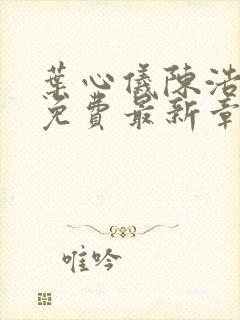 葉心儀陳浩
免費最新章
唯吟